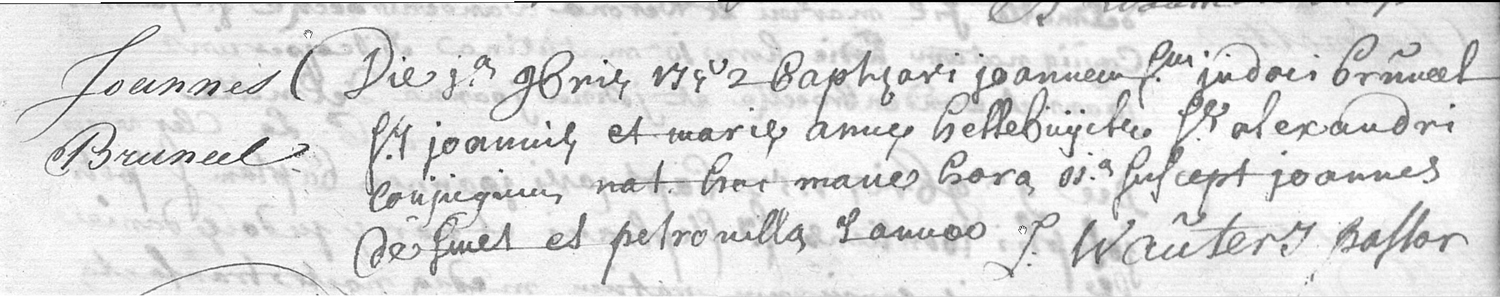 Joannes ( Die 1ª 9bris 1752 baptizavi joannem f.um judoci brûneel
Bruneel f.s joannis et marie anne hellebuijck f.s alexandri
conjugum nat. hac mane hora 6.a suscept joannes
de smet et petronilla Lannoo J. Waûters pastor